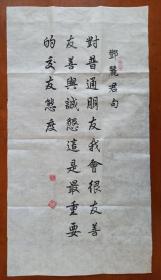 鄧麗君句
對普通朋友我會很友善
友善與誠懇這是最重要
的交友態度